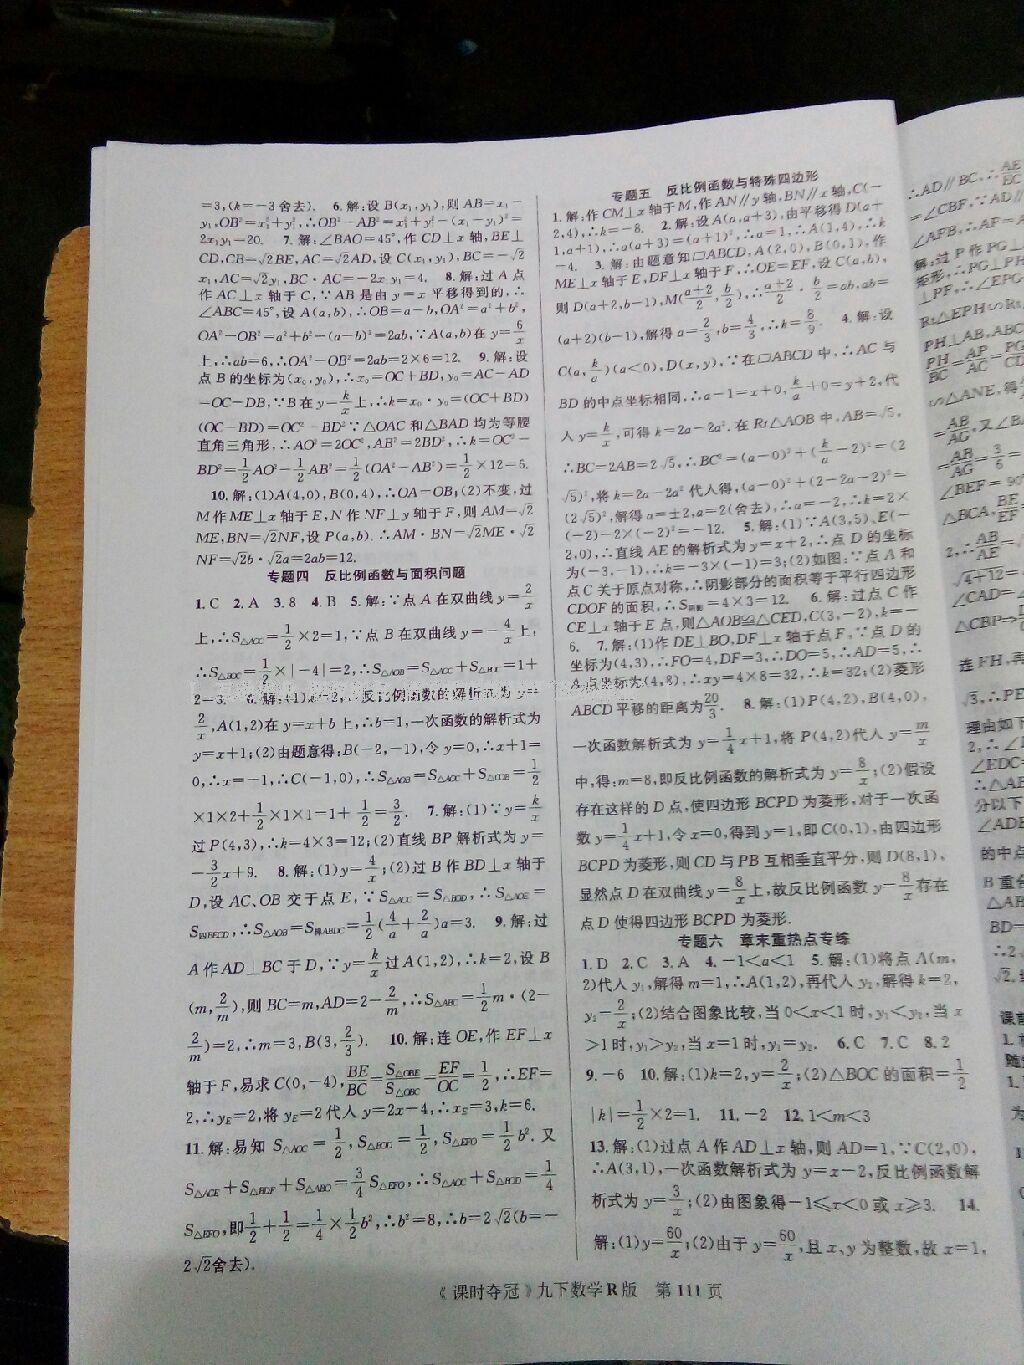 =3,(k=-3舍去). 6.解:设B(x₁,y₁),则AB=x₁-
y₁,OB²=x₁²+y₁²,∴OB²-AB²=x₁²+y₁²-(x₁-y₁)²=
2x₁y₁=20. 7.解:∠BAO=45°,作CD⊥x轴,BE⊥
CD,CB=√2BE,AC=√2AD,设C(x₁,y₁),BC=-√2
x₁,AC=√2y₁,BC·AC=-2x₁y₁=4. 8.解:过A点
作AC⊥x轴于C,∵AB是由y=x平移得到的,∴
∠ABC=45°,设A(a,b),∴OB=a-b,OA²=a²+b²,
OA²-OB²=a²+b²-(a-b)²=2ab,∵A(a,b)在y=6/x
上,∴ab=6,∴OA²-OB²=2ab=2×6=12. 9.解:设
点B的坐标为(x₀,y₀),∴x₀=OC+BD,y₀=AC-AD
=OC-DB,∵B在y=k/x上,∴k=x₀·y₀=(OC+BD)
(OC-BD)=OC²-BD²∵△OAC和△BAD均为等腰
直角三角形,∴AO²=2OC²,AB²=2BD²,∴k=OC²-
BD²=1/2AO²-1/2AB²=1/2(OA²-AB²)=1/2×12=6.
10.解:(1)A(4,0),B(0,4),∴OA=OB;(2)不变,过
M作ME⊥x轴于E,N作NF⊥y轴于F,则AM=√2
ME,BN=√2NF,设P(a,b).∴AM·BN=√2ME·√2
NF=√2b·√2a=2ab=12.
专题四 反比例函数与面积问题
1.C 2.A 3.8 4.B 5.解:∵点A在双曲线y=2/x
上,∴S△AOC=1/2×2=1,∵点B在双曲线y=-4/x上,
∴S△BOC=1/2×|-4|=2,∴S△AOB=S△AOC+S△BOC=1+
2=3. 6.解:(1)k=2,∴反比例函数的解析式为y=
2/x,A(1,2)在y=x+b上,∴b=1,一次函数的解析式为
y=x+1;(2)由题意得:B(-2,-1),令y=0,∴x+1=
0,∴x=-1,∴C(-1,0),∴S△AOB=S△AOC+S△COB=1/2
×1×2+1/2×1×1=1+1/2=3/2. 7.解:(1)∵y=k/x
过P(4,3),∴k=4×3=12;(2)直线BP解析式为y=
-3/2x+9. 8.解:(1)y=4/x;(2)过B作BD⊥x轴于
D,设AC、OB交于点E,∵S△AOC=S△BOD,∴S△AOE=
S四边形BECD,∴S△AOB=S梯ABDC=1/2(4/a+2/a)a=3. 9.解:过
A作AD⊥BC于D,∵y=k/x过A(1,2),∴k=2,设B
(m,2/m),则BC=m,AD=2-2/m,∴S△ABC=1/2m·(2-
2/m)=2,∴m=3,B(3,2/3). 10.解:连OE,作EF⊥x
轴于F,易求C(0,-4),BE/BC=S△OBE/S△OBC=EF/OC=1/2,∴EF=
2,∴yE=2,将yE=2代入y=2x-4,∴xE=3,k=6.
11.解:易知S△AOC=1/2,S△BOD=1/2,S△EFO=1/2b².又
S△ACE+S△BDF+S△ABO=3/4S△EFO,∴S△AOC+S△BOD=1/4
S△EFO,即1/2+1/2=1/4×1/2b²,∴b²=8,∴b=2√2(b=-
2√2舍去).
专题五 反比例函数与特殊四边形
1.解:作CM⊥x轴于M,作AN∥y轴,BN∥x轴,C(-
2,4),∴k=-8. 2.解:设A(a,a+3),由平移得D(a+
1,a+1),∴a(a+3)=(a+1)²,∴a=1,∴A(1,4),∴k
=4. 3.解:由题意知▱ABCD,A(2,0),B(0,1),作
ME⊥x轴于E,DF⊥x轴于F,∴OE=EF,设C(a,b),
则D(a+2,b-1),M(a+2/2,b/2),∴a+2/2·b/2=ab,ab=
(a+2)(b-1),解得a=2/3,b=4/3,∴k=8/9. 4.解:设
C(a,k/a)(a<0),D(x,y),∵在▱ABCD中,∴AC与
BD的中点坐标相同,∴a-1=x+0,k/a+0=y+2,代
入y=k/x,可得k=2a-2a².在Rt△AOB中,AB=√5,
∴BC=2AB=2√5,∴BC²=(a-0)²+(k/a-2)²=(2
√5)²,将k=2a-2a²代入得,(a-0)²+(2-2a-2)²=
(2√5)²,解得a=±2,a=2(舍去),∴a=-2,∴k=2×
(-2)-2×(-2)²=-12. 5.解:(1)∵A(3,5)、E(-
2,0),∴直线AE的解析式为y=x+2,∴点D的坐标
为(-3,-1),∴k=-3×(-1)=3;(2)如图:∵点A和
点C关于原点对称,∴阴影部分的面积等于平行四边形
CDOF的面积,∴S阴影=4×3=12. 6.解:过点C作
CE⊥x轴于E点,则△AOB≌△CED,C(3,-2),k=-
6. 7.解:(1)作DE⊥BO,DF⊥x轴于点F,∵点D的
坐标为(4,3),∴FO=4,DF=3,∴DO=5,∴AD=5,∴
A点坐标为(4,8),∴xy=4×8=32,∴k=32;(2)菱形
ABCD平移的距离为20/3. 8.解:(1)P(4,2),B(4,0),
一次函数解析式为y=1/4x+1,将P(4,2)代入y=m/x
中,得:m=8,即反比例函数的解析式为y=8/x;(2)假设
存在这样的D点,使四边形BCPD为菱形,对于一次函
数y=1/4x+1,令x=0,得到y=1,即C(0,1),由四边形
BCPD为菱形,则CD与PB互相垂直平分,则D(8,1),
显然点D在双曲线y=8/x上,故反比例函数y=8/x存在
点D使得四边形BCPD为菱形.
专题六 章末重热点专练
1.D 2.C 3.A 4.-1<a<1 5.解:(1)将点A(m,
2)代入y₁,解得m=1,∴A(1,2),再代入y₂,解得k=2,
y₂=2/x;(2)结合图象比较,当0<x<1时,y₁<y₂,当x
>1时,y₁>y₂,当x=1时,y₁=y₂. 6.C 7.C 8.2
9.-6 10.解:(1)k=2,y=2/x;(2)△BOC的面积=1/2
|k|=1/2×2=1. 11.-2 12.1<m<3
13.解:(1)过点A作AD⊥x轴,则AD=1,∵C(2,0),
∴A(3,1),一次函数解析式为y=x-2,反比例函数解
析式为y=3/x;(2)由图象得-1≤x<0或x≥3. 14.
解:(1)y=60/x;(2)由于y=60/x,且x、y为整数,故x=1,
《课时夺冠》九下数学R版 第111页
∴AD∥BC,∴AE
=∠CBF,∵AD
∠AFB,∴AF=A
解:过P作PG⊥
矩形,∴PG⊥PH
⊥PF,∴∠EPG
Rt△EPH∽Rt
PH⊥AB,ABC
PH/BC=AP/AC=PG/CD
∽△ANE,得
=AB/AG,又∠BA
=AB/AG=3/6=
∠BEF=90°
∠BCA,BE/EF
2,∴AB/AE=
√4+12=
∠CAD=
△CBP
连FH,再
√3,∴PE
理由如下
2,∴∠
∠EDC=
∴△AB
分以下
∠ADE
的中点
B重合
△AB
BD=
∴2
√2.
课前